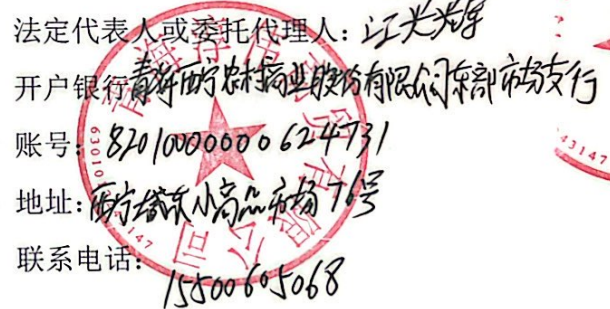 法定代表人或委托代理人:江光辉
开户银行青海西宁农村商业股份有限公司东部市场支行
账号:82010000000624731
地址:西宁城东小商品市场76号
联系电话:15500605068